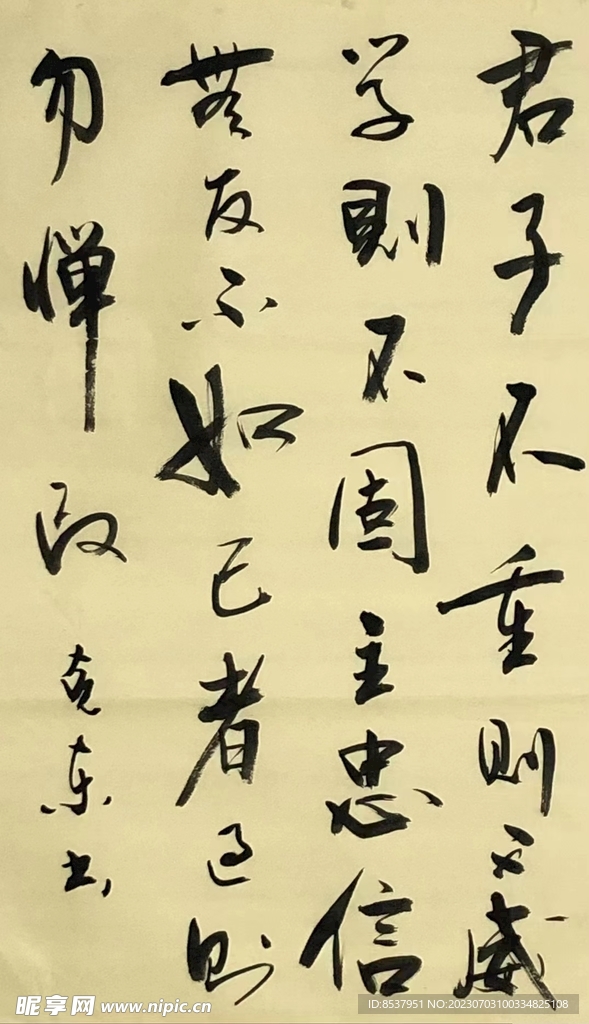 君子不重则不威
学则不固主忠信
無友不如己者过则
勿惮改
克东书
昵享网 www.nipic.cn
ID:8537951 NO:20230703100334825108